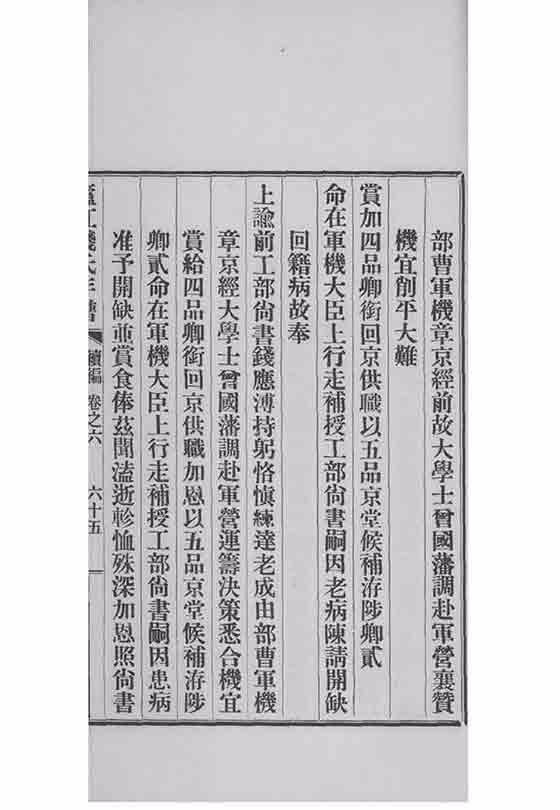 部曹軍機章京經前故大學士曾國藩調赴軍營襄贊
機宜削平大難
賞加四品卿銜回京供職以五品京堂候補洊陟卿貳
命在軍機大臣上行走補授工部尙書嗣因老病陳請開缺
回籍病故奉
上諭前工部尙書錢應溥持躬恪愼練達老成由部曹軍機
章京經大學士曾國藩調赴軍營運籌決策悉合機宜
賞給四品卿銜回京供職加恩以五品京堂候補洊陟
卿貳命在軍機大臣上行走補授工部尙書嗣因患病
准予開缺並賞食俸茲聞溘逝軫恤殊深加恩照尙書
續編 卷之六 六十五